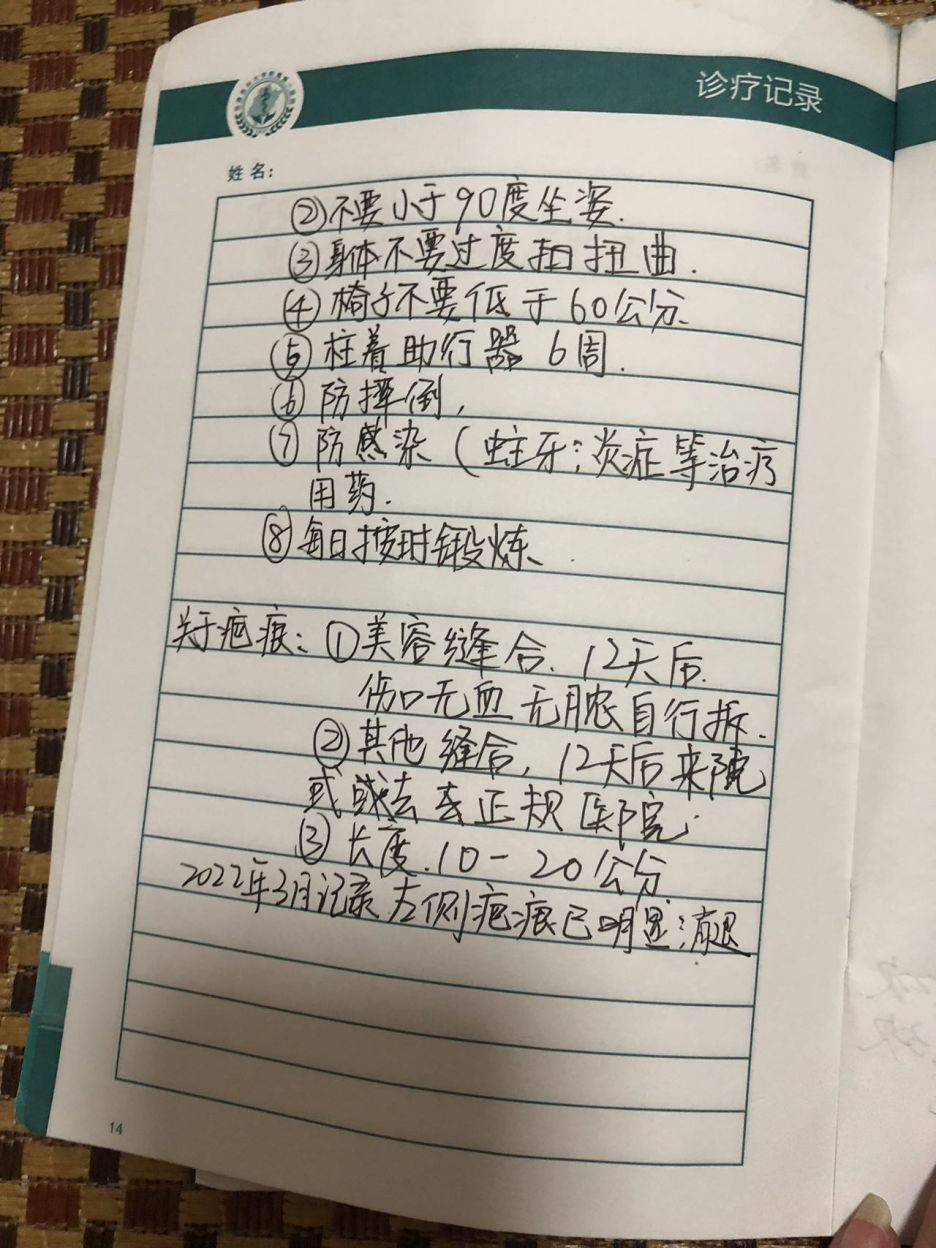 诊疗记录
姓名:
②不要小于90度坐姿.
③身体不要过度扭扭曲.
④椅子不要低于60公分.
⑤柱着助行器 6周.
⑥防摔倒,
⑦防感染(蛀牙;炎症等治疗
用药.
⑧每日按时锻炼.
关于疤痕:①美容缝合.12天后.
伤口无血无脓自行拆.
②其他缝合,12天后来院
或或去去正规医院.
③长度.10-20公分
2022年3月记录左侧疤痕已明显消退
14